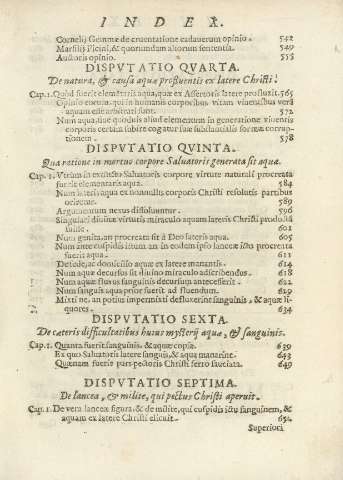 INDEX.
Cornelij Gemmæ de cruentatione cadauerum opinio. 542
Marsilij Ficini, & quorundam aliorum sententia. 549
Auctoris opinio. 555
DISPUTATIO QUARTA.
De natura, & causa aquæ profluentis ex latere Christi.
Cap. 1. Quid fuerit elementaris aqua, quæ ex Assertoris latere profluxit. 565
Opinio eorum, qui in humanis corporibus vitam viuentibus verã
aquam esse arbitrati sunt. 572
Num aqua, siue quoduis aliud elementum in generatione viuentis
corporis certam subire cogatur suæ substantialis formæ corrup-
tionem. 578
DISPUTATIO QUINTA.
Qua ratione in mortuo corpore Saluatoris generata sit aqua.
Cap. 1. Vtrum in existẽte Saluatoris corpore virtute naturali procreata
fuerit elementaris aqua. 584
Num iacens aqua ex nonnullis corporis Christi resolutis partibus
oriretur. 589
Argumentum nexus dissoluuntur. 596
Singulari diuinæ virtutis miraculo aquam lateris Christi productã
fuisse. 601
Num genita, an procreata sit à Deo lateris aqua. 605
Num ante cuspidis ictum an in eodem ipso lanceæ ictu procreata
fuerit aqua. 611
De sede, ac domicilio aquæ ex latere manantis. 614
Num aquæ decursus sit diuino miraculo adscribendus. 618
Num aquæ fluxus sanguinis decursum antecesserit. 622
Num sanguis aqua prior fuerit ad fluendum. 629
Mixti ne, an potius impermixti defluxerint sanguinis, & aquæ li-
quores. 634
DISPUTATIO SEXTA.
De cæteris difficultatibus huius mysterij aquæ, & sanguinis.
Cap. 1. Quanta fuerit sanguinis, & aquæ copia. 639
Ex quo Saluatoris latere sanguis, & aqua manarint. 643
Quænam fuerit pars pectoris Christi ferro sauciata. 649
DISPUTATIO SEPTIMA.
De lancea, & milite, qui pectus Christi aperuit.
Cap. 1. De vera lanceæ figura, & de milite, qui cuspidis ictu sanguinem, &
aquam ex latere Christi elicuit. 654
Superiori